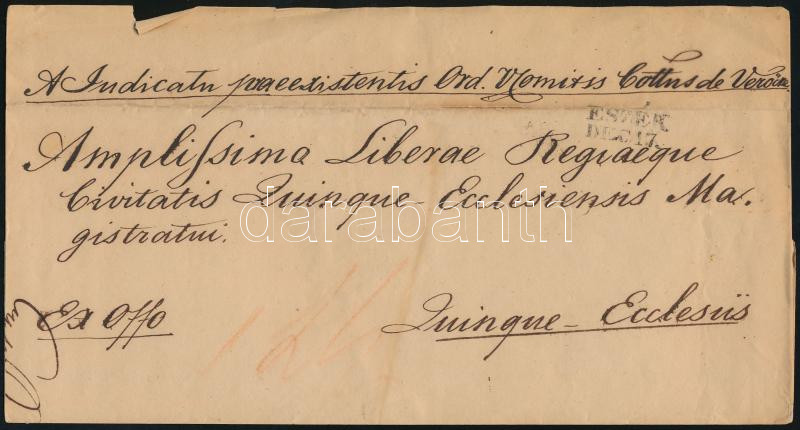 A Judicatu praeexistentis Ord. Nomixis Cottus de Verőcze
ESZÉK
DEC 17.
Amplissimo Liberae Regiaeque
Civitatis Quinque Ecclesiensis Ma.
gistratui.
darabanth
Ex Offo
Quinque-Ecclesiis